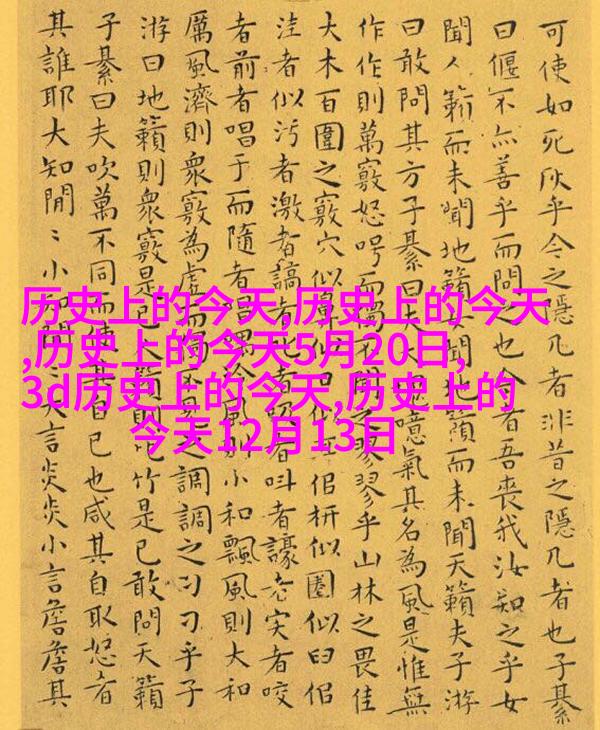 可使如死灰乎今之隱几者非昔之隱几者也子綦
曰偃不亦善乎而問之也今者吾喪我汝知之乎女
聞人籟而未聞地籟聞地籟而未聞天籟夫子游
曰敢問其方子綦曰夫大噫氣其名為風是惟無
作作則萬竅怒呺而獨不聞之翏翏乎山林之畏佳
大木百圍之竅穴似鼻似口似佀枅似圈似臼佀
洼者似污者激者謞者叱者吸者叫者譹者宎者咬
者前者唱于而隨者唱喁泠風則小和飄風則大和
厲風濟則眾竅為虛而獨不見之調調之刁刁乎子
游曰地籟則眾竅是已人籟則比竹是已敢問天籟
子綦曰夫吹萬不同而使其自已也咸其自取怒者
其誰耶大知閒〻小知閒〻大言炎炎小言詹詹其
历史上的今天,历史上的今天
,历史上的今天5月20日,
3d历史上的今天,历史上的
今天12月13日